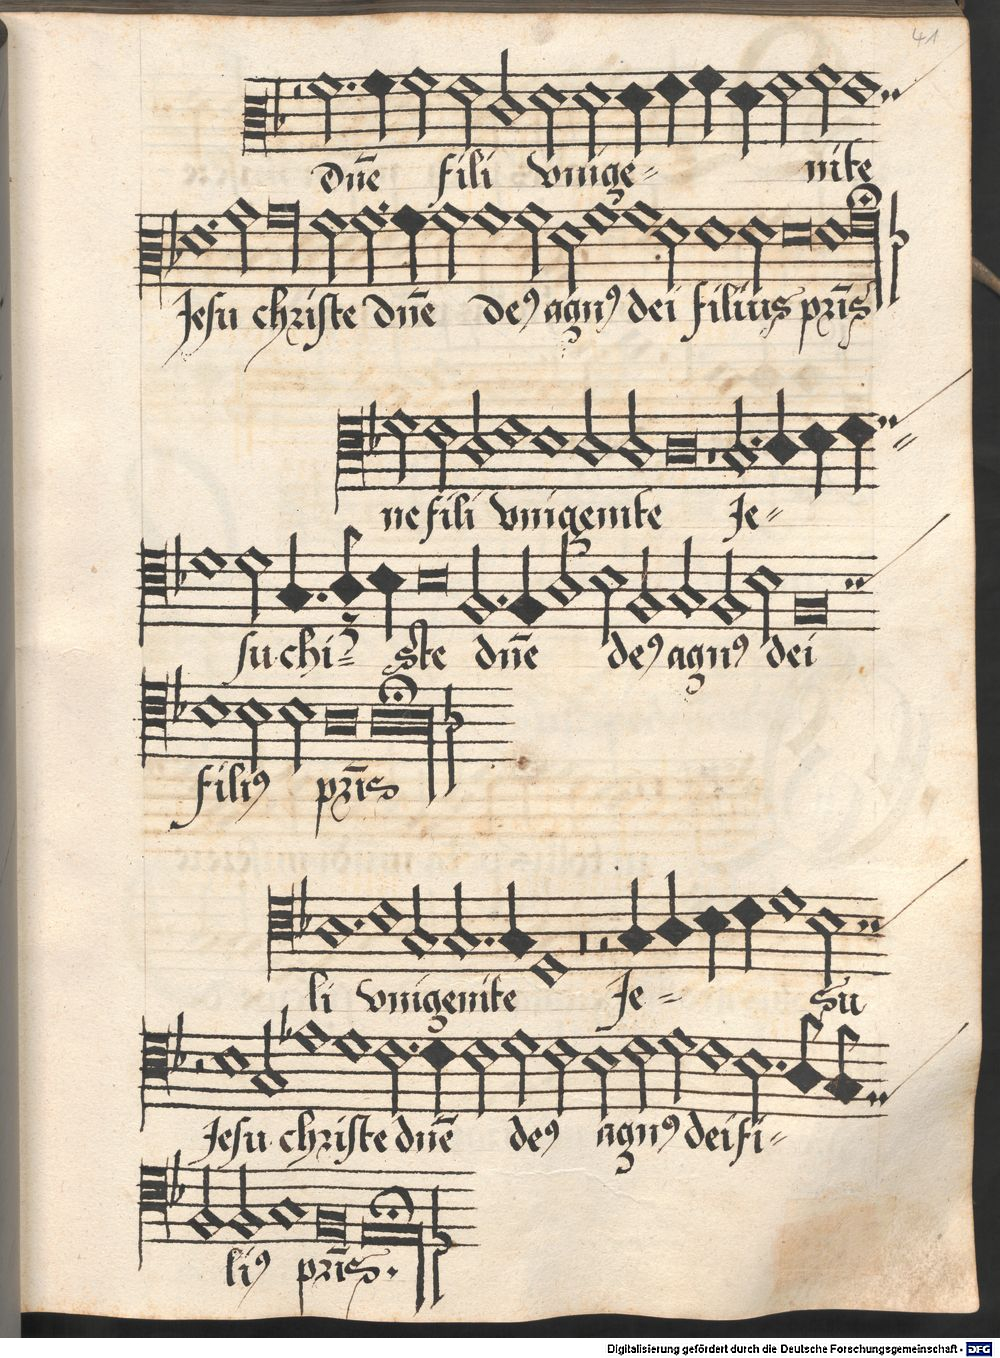 41
Dn̄e fili vnige= nite
Jesu christe dn̄e deꝰ agnꝰ dei filius pr̄is
ne fili vnigenite Je=
su chi= ste dn̄e deꝰ agnꝰ dei
filiꝰ pr̄is
li vnigenite Je= su
Jesu christe dn̄e deꝰ agnꝰ dei fi=
liꝰ pr̄is.
Digitalisierung gefördert durch die Deutsche Forschungsgemeinschaft - DFG